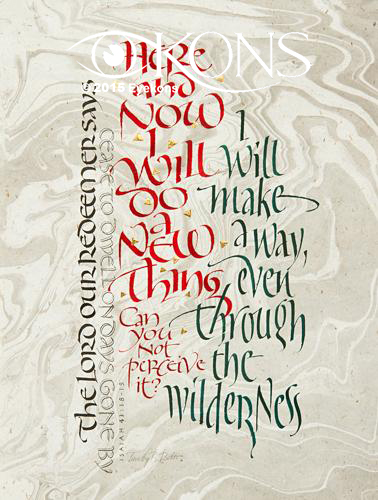 EYEKONS
©2015 Eyekons
The LORD OUR REDEEMER SAYS
CEASE TO DWELL ON DAYS GONE BY
ISAIAH 43:18-19
HERE
AND
NOW
I
Will
DO
a
NEW
Thing
Can
you
Not
perceive
it?
I
will
make
a way,
even
through
the
wilderNess